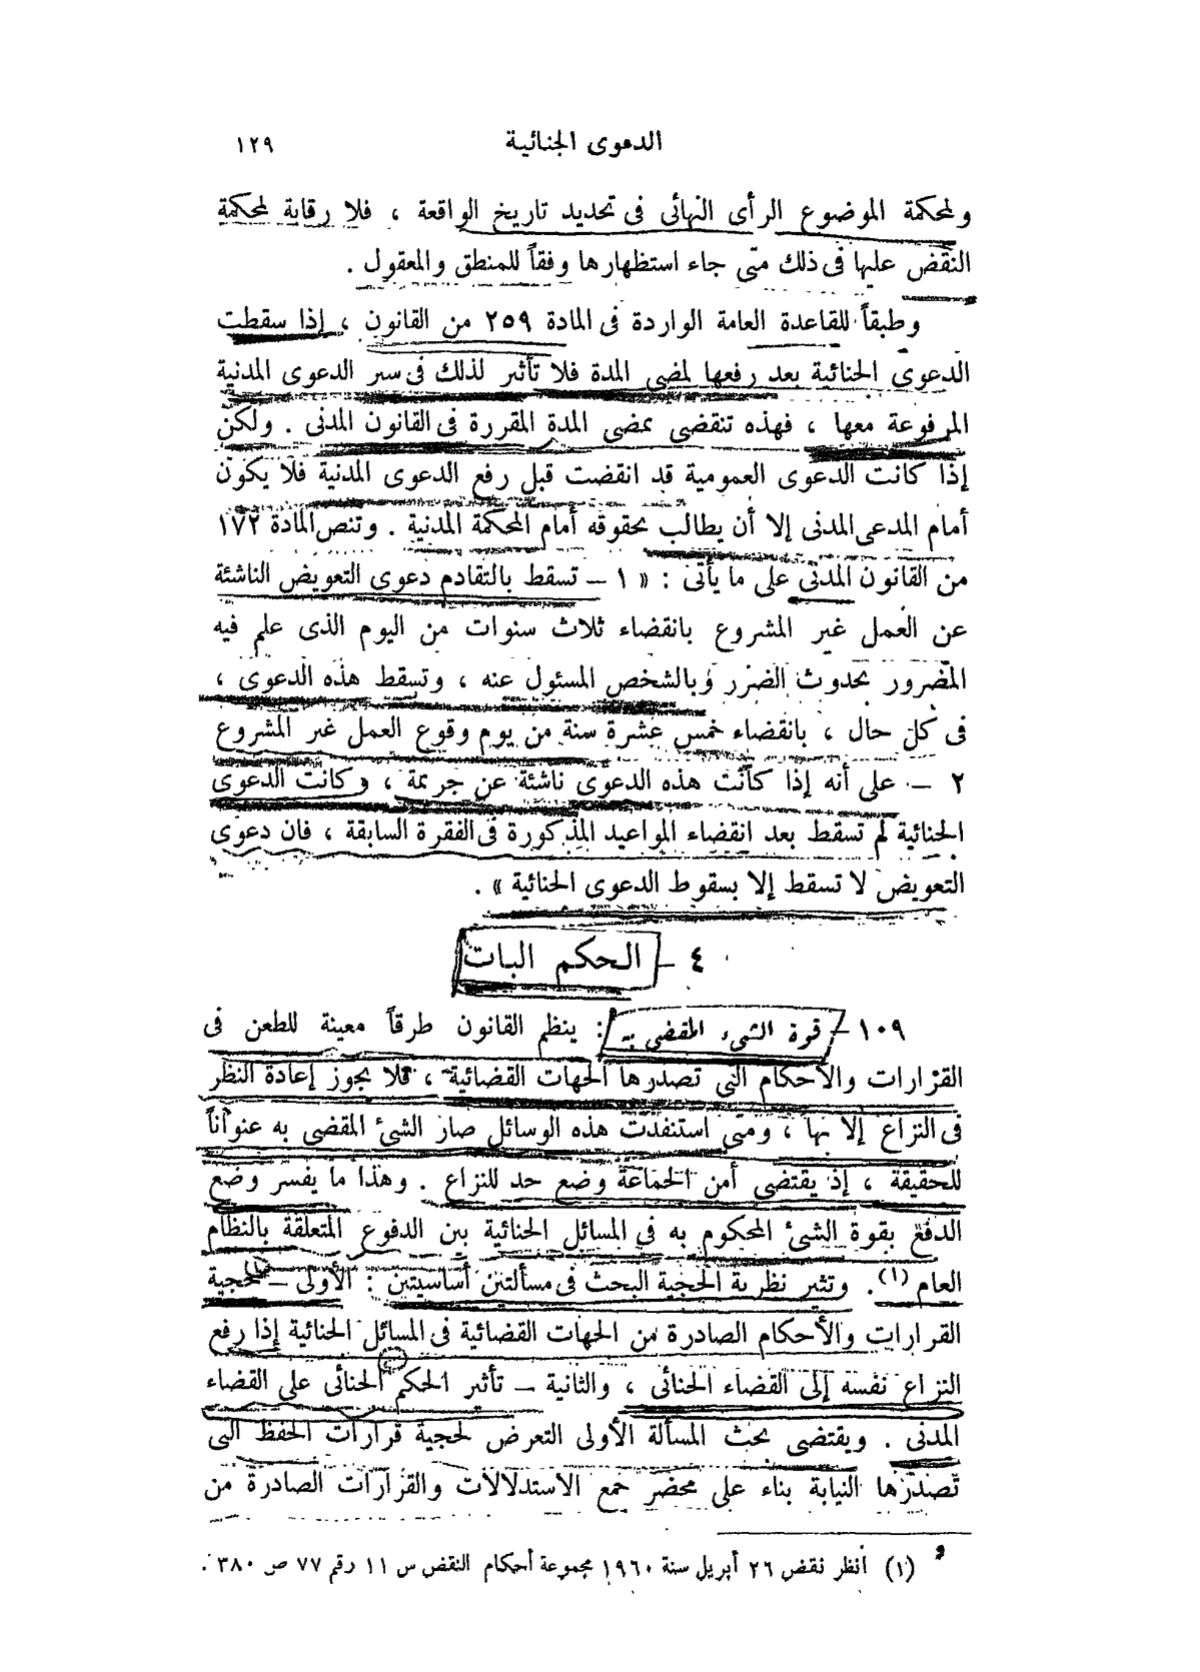 الدعوى الجنائية ١٢٩
ولمحكمة الموضوع الرأى النهائى فى تحديد تاريخ الواقعة ، فلا رقابة لمحكمة
النقض عليها فى ذلك متى جاء استظهارها وفقاً للمنطق والمعقول .
وطبقاً للقاعدة العامة الواردة فى المادة ٢٥٩ من القانون ، إذا سقطت
الدعوى الجنائية بعد رفعها لمضى المدة فلا تأثير لذلك فى سير الدعوى المدنية
المرفوعة معها ، فهذه تنقضى بمضى المدة المقررة فى القانون المدنى . ولكن
إذا كانت الدعوى العمومية قد انقضت قبل رفع الدعوى المدنية فلا يكون
أمام المدعى المدنى إلا أن يطالب بحقوقه أمام المحكمة المدنية . وتنص المادة ١٧٢
من القانون المدنى على ما يأتى : « ١ – تسقط بالتقادم دعوى التعويض الناشئة
عن العمل غير المشروع بانقضاء ثلاث سنوات من اليوم الذى علم فيه
المضرور بحدوث الضرر وبالشخص المسئول عنه ، وتسقط هذه الدعوى ،
فى كل حال ، بانقضاء خمس عشرة سنة من يوم وقوع العمل غير المشروع
٢ – على أنه إذا كانت هذه الدعوى ناشئة عن جريمة ، وكانت الدعوى
الجنائية لم تسقط بعد انقضاء المواعيد المذكورة فى الفقرة السابقة ، فان دعوى
التعويض لا تسقط إلا بسقوط الدعوى الجنائية » .
٤ – الحكم البات
١٠٩ – قوة الشىء المقضى به : ينظم القانون طرقاً معينة للطعن فى
القرارات والأحكام التى تصدرها الجهات القضائية ، فلا يجوز إعادة النظر
فى النزاع إلا بها ، ومتى استنفدت هذه الوسائل صار الشئ المقضى به عنواناً
للحقيقة ، إذ يقتضى أمن الجماعة وضع حد للنزاع . وهذا ما يفسر وضع
الدفع بقوة الشئ المحكوم به فى المسائل الجنائية بين الدفوع المتعلقة بالنظام
العام (١). وتثير نظرية الحجية البحث فى مسألتين أساسيتين : الأولى – حجية
القرارات والأحكام الصادرة من الجهات القضائية فى المسائل الجنائية إذا رفع
النزاع نفسه إلى القضاء الجنائى ، والثانية – تأثير الحكم الجنائى على القضاء
المدنى . ويقتضى بحث المسألة الأولى التعرض لحجية قرارات الحفظ التى
تصدرها النيابة بناء على محضر جمع الاستدلالات والقرارات الصادرة من
(١) انظر نقض ٢٦ أبريل سنة ١٩٦٠ مجموعة أحكام النقض س ١١ رقم ٧٧ ص ٣٨٠ .